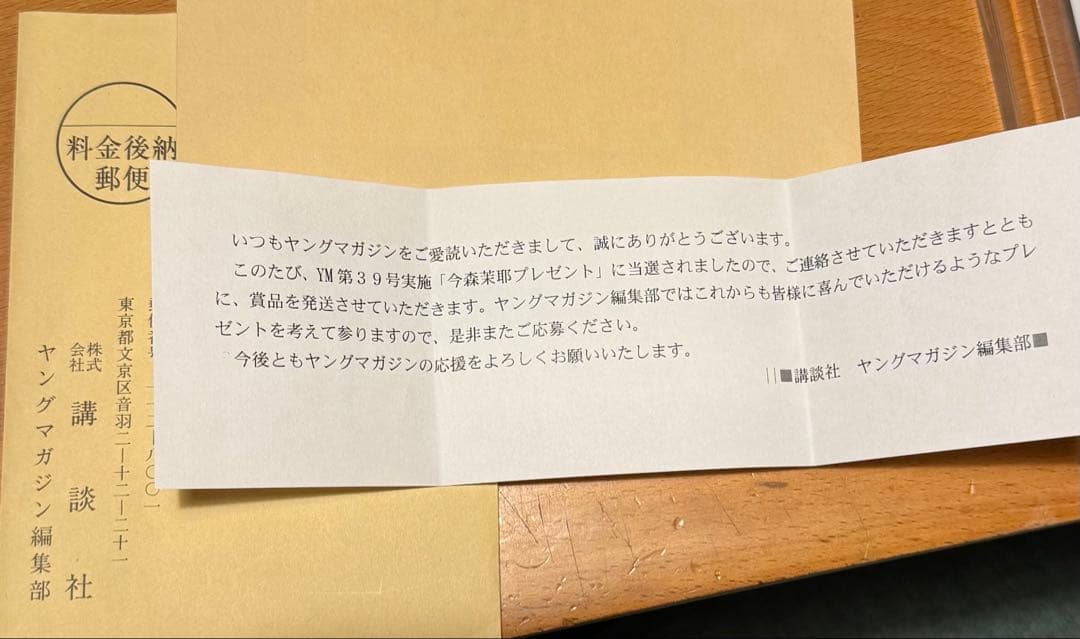 料金後納
郵便
いつもヤングマガジンをご愛読いただきまして、誠にありがとうございます。
このたび、YM第39号実施「今森茉耶プレゼント」に当選されましたので、ご連絡させていただきますととも
に、賞品を発送させていただきます。ヤングマガジン編集部ではこれからも皆様に喜んでいただけるようなプレ
ゼントを考えて参りますので、是非またご応募ください。
今後ともヤングマガジンの応援をよろしくお願いいたします。
||■講談社 ヤングマガジン編集部■
東京都文京区音羽二ー十二ー二十一
株式会社 講談社
ヤングマガジン編集部